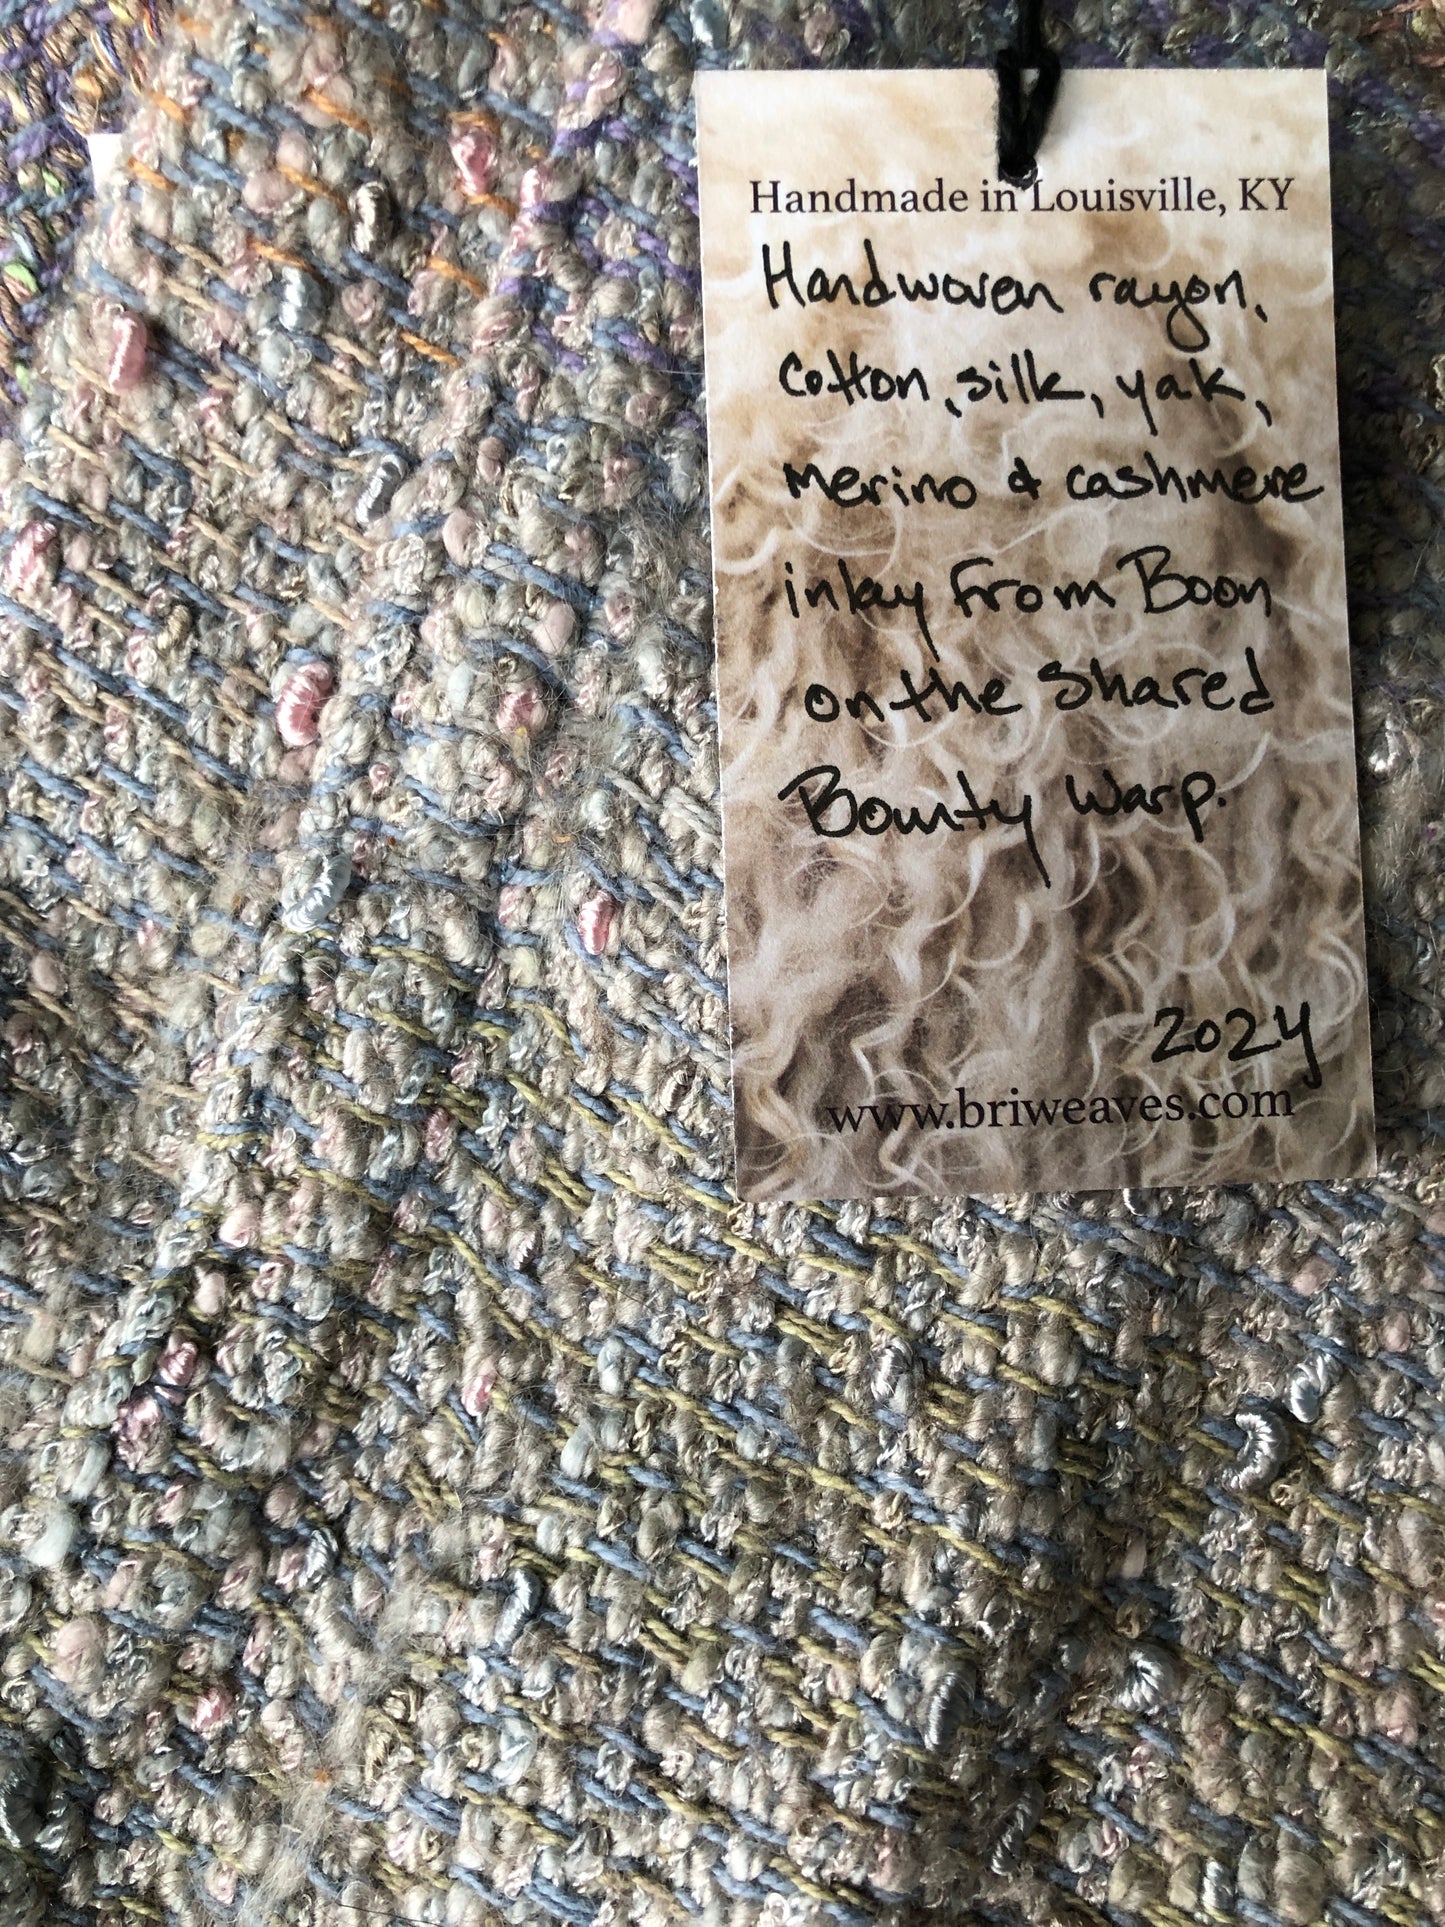 Handmade in Louisville, KY
Handwoven rayon,
Cotton, silk, yak,
merino & cashmere
inlay from Boon
on the Shared
Bounty Warp.
2024
www.briweaves.com